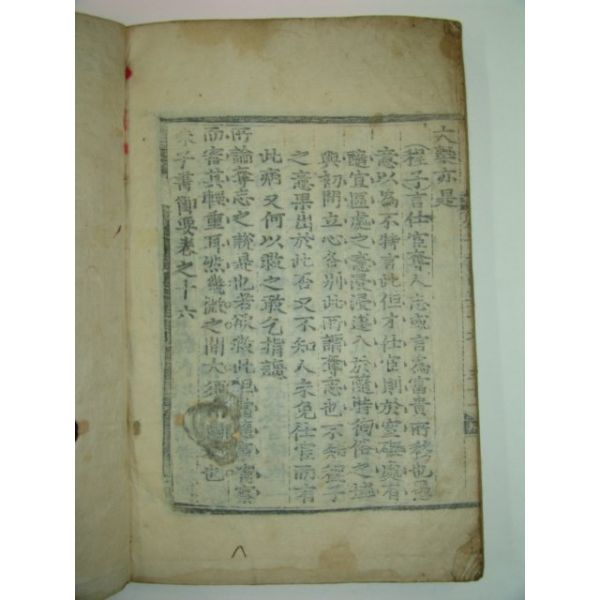 大槩亦是
程子言仕宦奪人志或言爲富貴所移也愚
意以爲不特言此但才仕宦則於窒礙處有
隨宜區處之意浸浸遂入於隨時徇俗之域
與初間立心各別此所謂奪志也不知程子
之意果出於此否又不知人未免仕宦而有
此病又何以救之敢乞指誨
所論奪志之弊是也若欲救此但當察
而審其輕重耳然幾微之間大須也
朱子書節要卷之十六